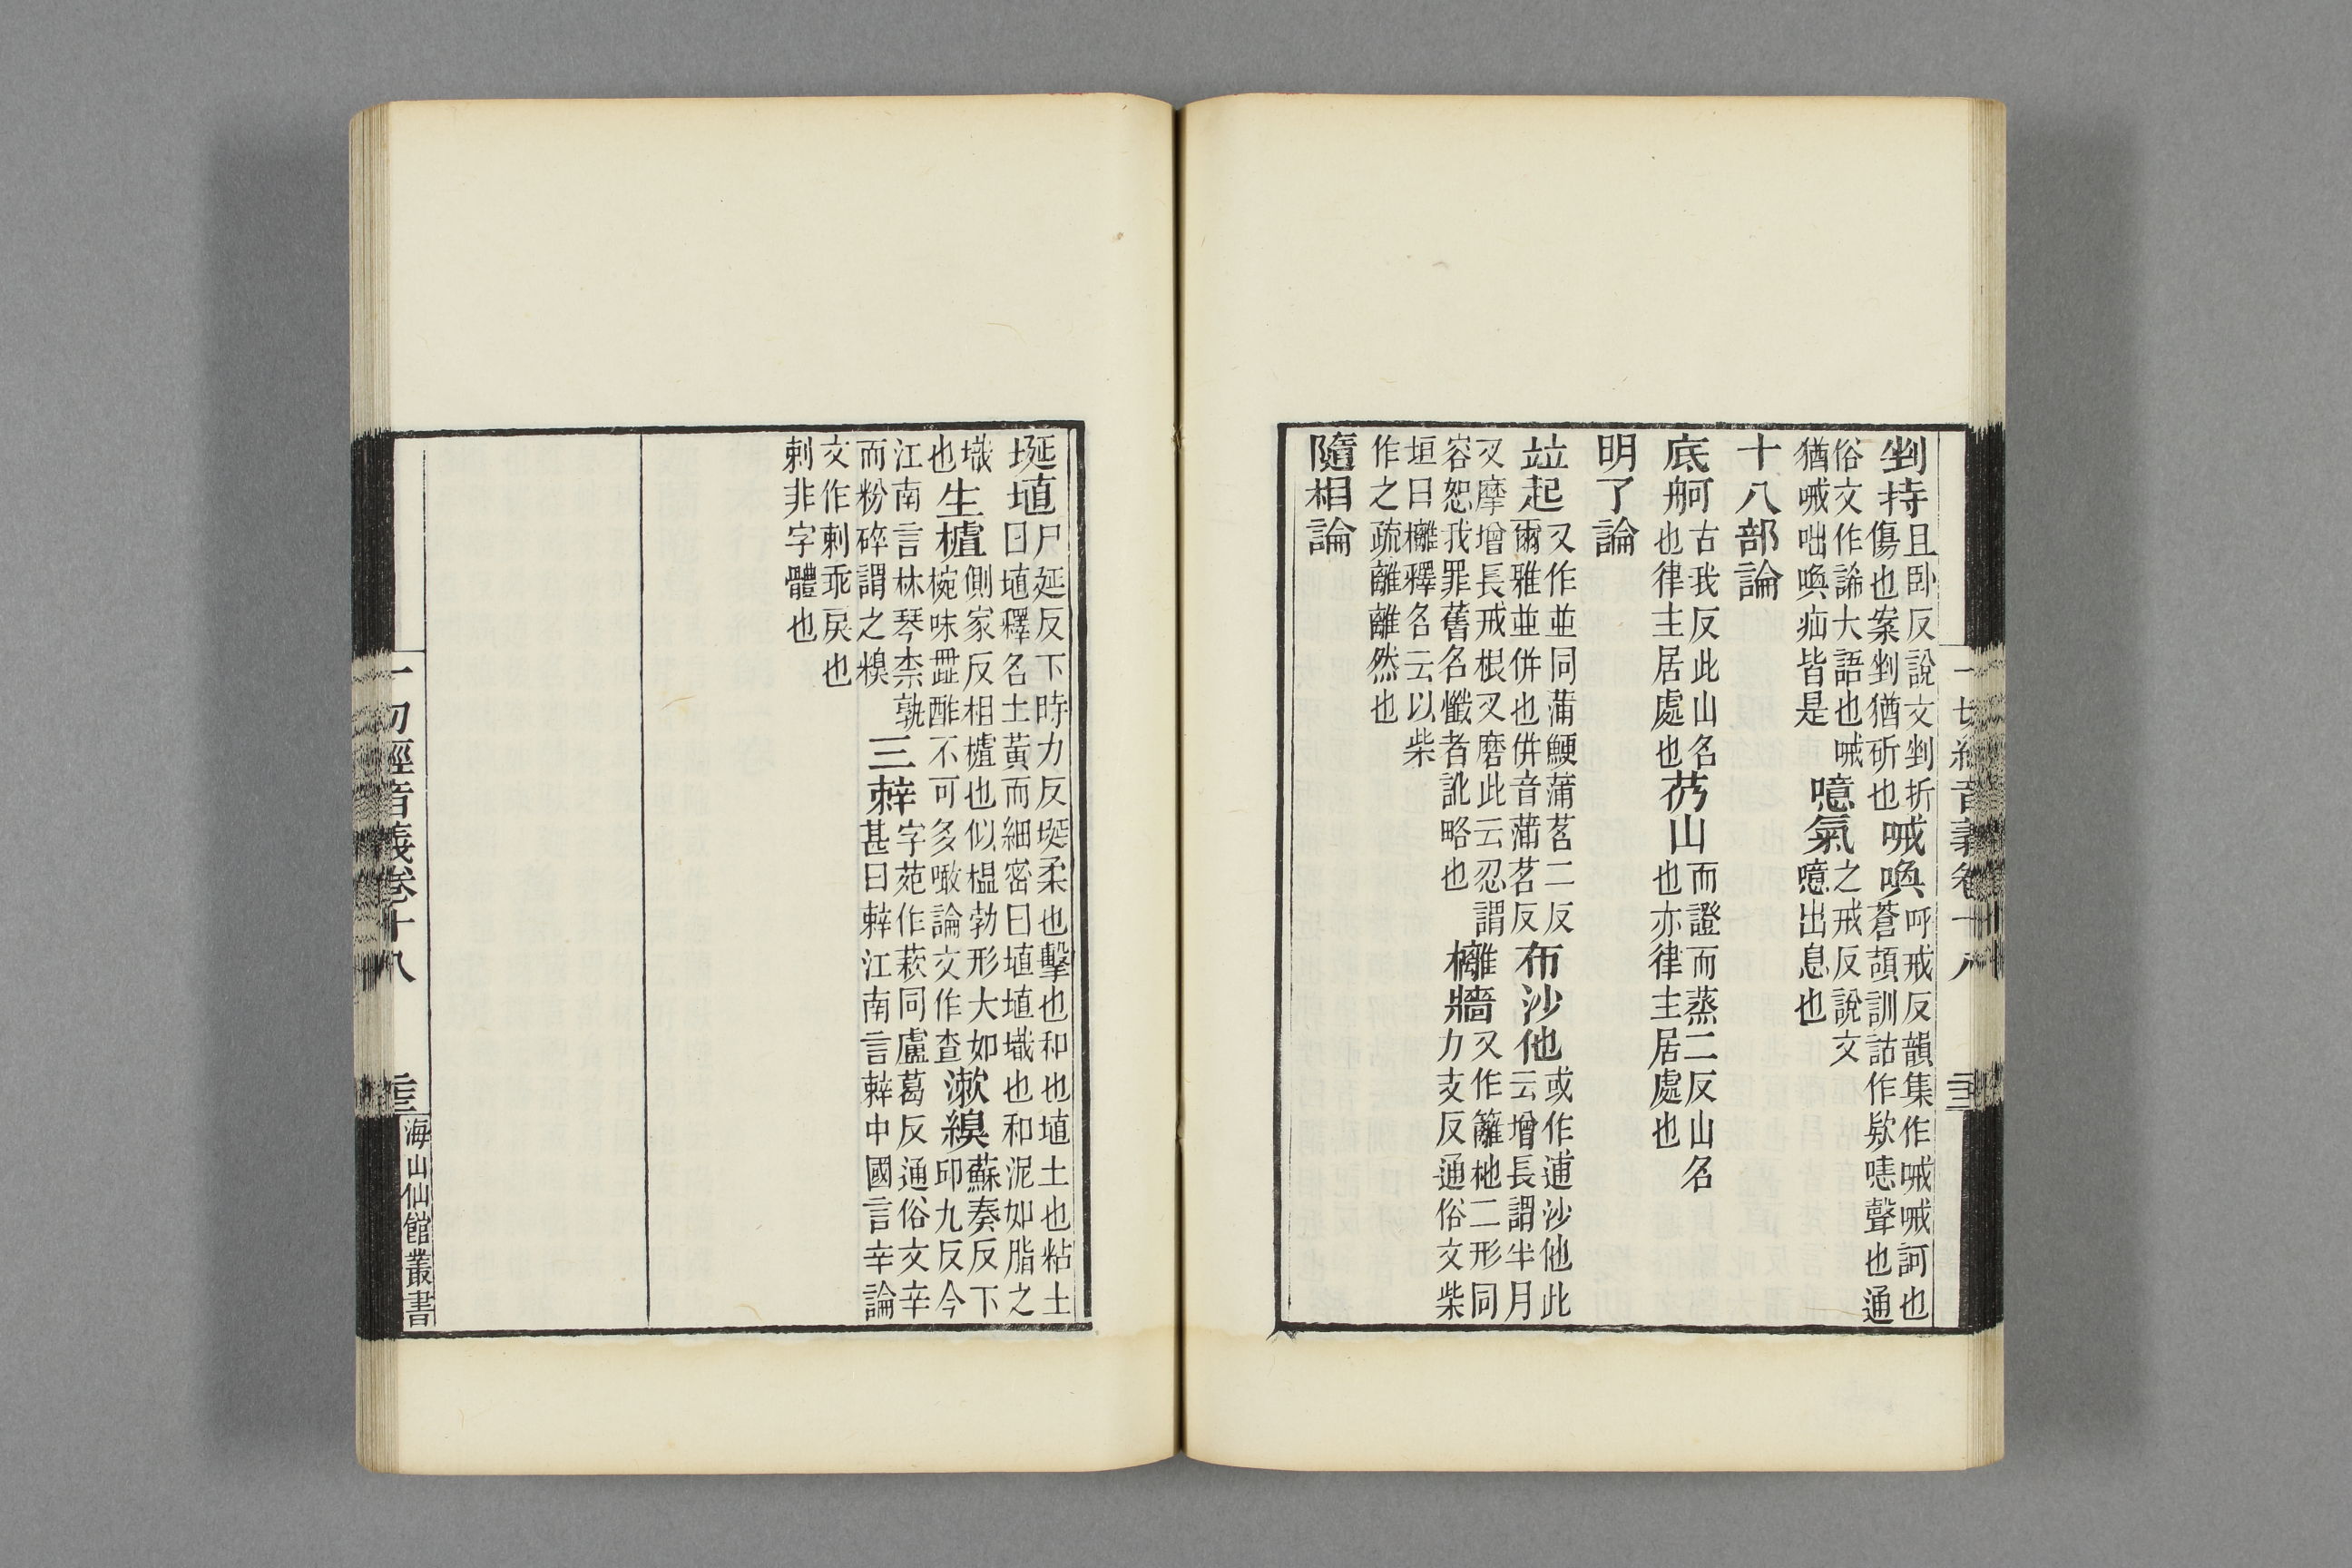 剉持且卧反說文剉折傷也案剉猶斫也喊喚呼戒反韻集作喊喊訶也蒼頡訓詁作欵㗏聲也通
俗文作諦大語也喊猶喊咄喚疝皆是噫氣之戒反說文噫出息也
十八部論
底舸古我反此山名也律主居處也芿山而證而蒸二反山名也亦律主居處也
明了論
竝起又作並同蒲鯁蒲茗二反爾雅並併也併音蒲茗反布沙他或作逋沙他此云增長謂半月
又摩增長戒根又磨此云忍謂容恕我罪舊名懺者訛略也樆牆又作籬杝二形同力支反通俗文柴
垣曰樆釋名云以柴作之疏離離然也
隨相論
一切經音義卷十八
埏埴尸延反下時力反埏柔也擊也和也埴土也粘土曰埴釋名土黃而細密曰埴埴𡑌也和泥如脂之
𡑌也生樝側家反相樝也似榲勃形大如椀味㱔酢不可多噉論文作查漱糗蘇奏反下邱九反今
江南言林琴柰孰而粉碎謂之糗三辢字苑作同盧葛反通俗文辛甚曰辢江南言辢中國言辛論
文作剌乖戾也剌非字體也
一切經音義卷十八
海山仙館叢書